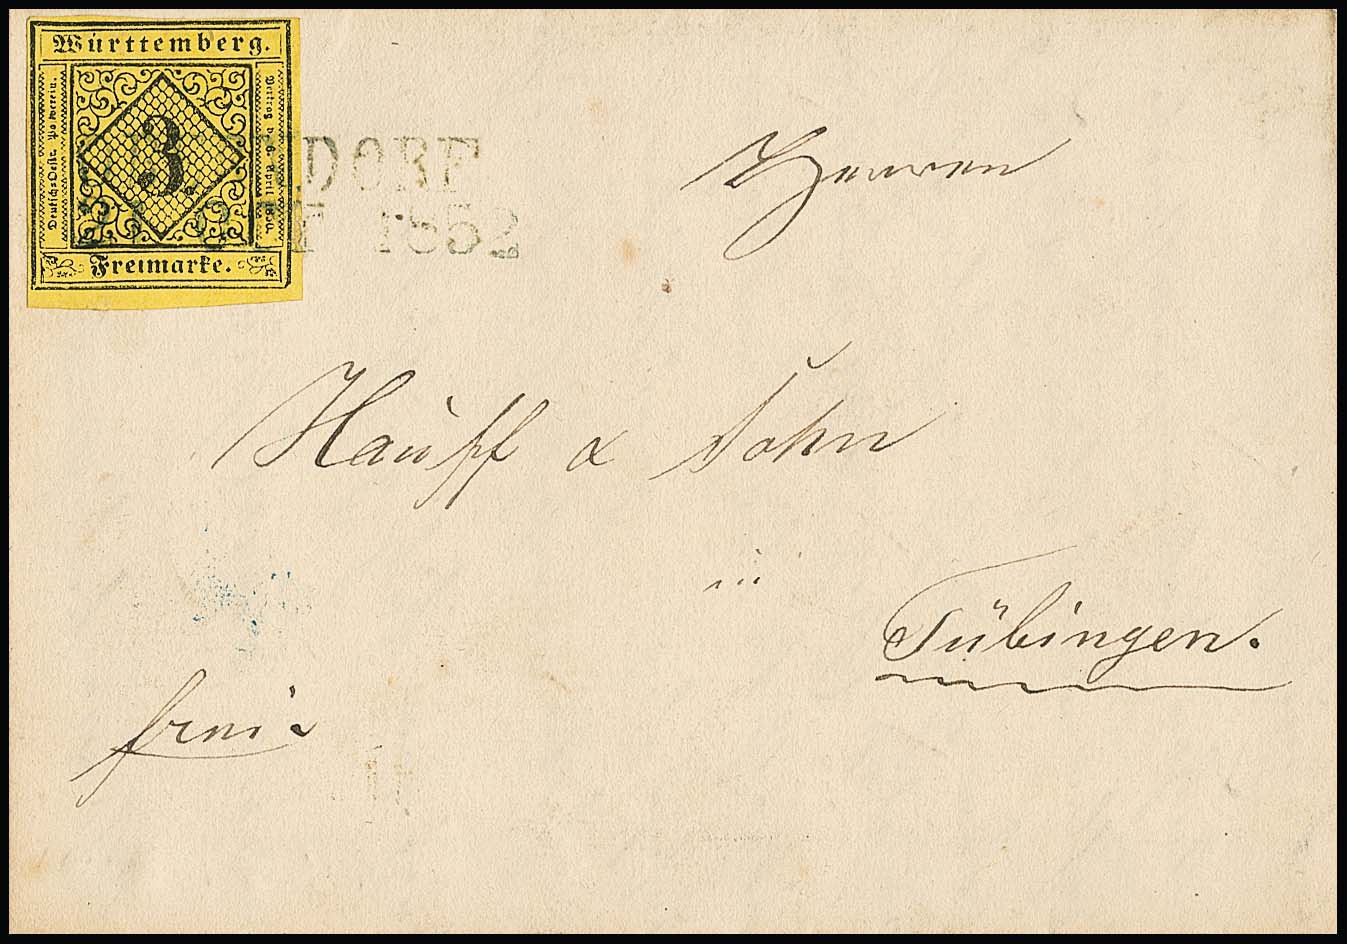 Württemberg.
Deutsch-Oestr. Postverein.
3
Vertrag v. 6. April 1850.
Freimarke.
DORF
1852
Herren
Hauff & Sohn
in
Tübingen.
frei.